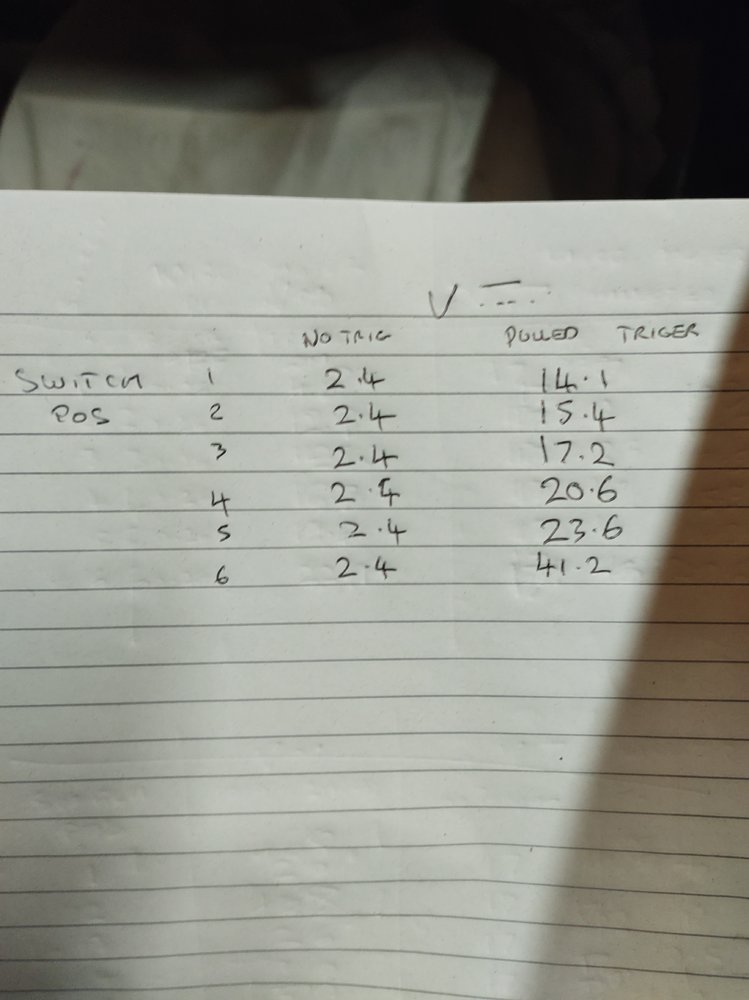 V ⎓
NO TRIG PULLED TRIGER
SWITCH 1 2.4 14.1
POS 2 2.4 15.4
3 2.4 17.2
4 2.4 20.6
5 2.4 23.6
6 2.4 41.2